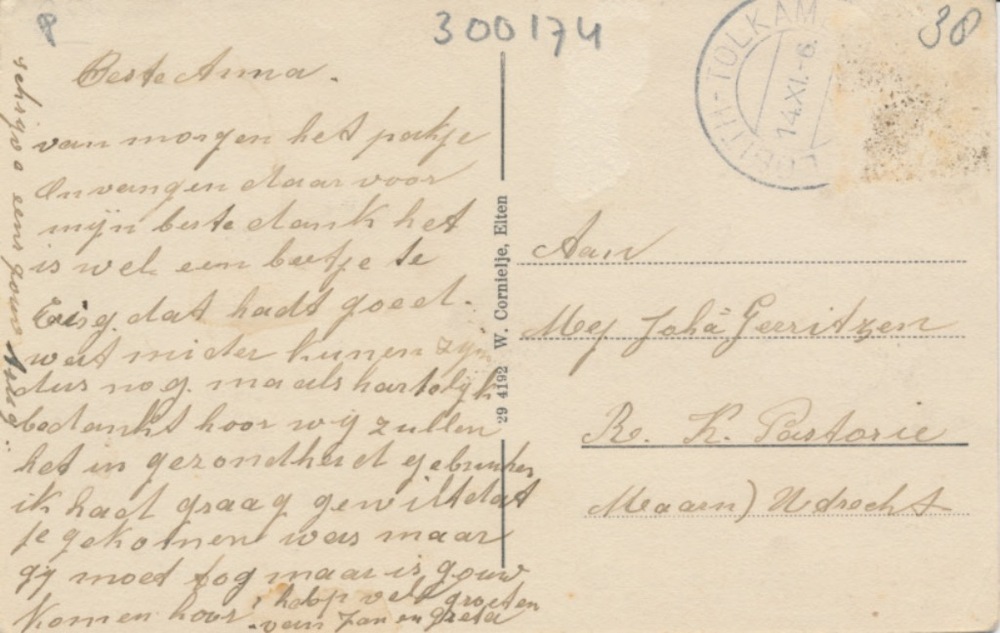 300174
38
LOBITH-TOLKAM
14.XI.-6
Beste Anna.
van morgen het pakje
Onvangen daar voor
mijn beste dank het
is wel een beetje te
Erig. dat hadt goed.
wat mider kunen zijn
dus nog maals hartelijk
bedankt hoor wij zullen
het in gezondheid gebruiken
ik had graag gewilt dat
je gekomen was maar
gij moed tog maar is gouw
komen hoor
hoop vele groeten
van Jan en Greta
eens gouw
29 4192 W. Cornielje, Elten
Aan
Mej Joha Gerritzen
R. K. Pastorie
Maarn) Utrecht